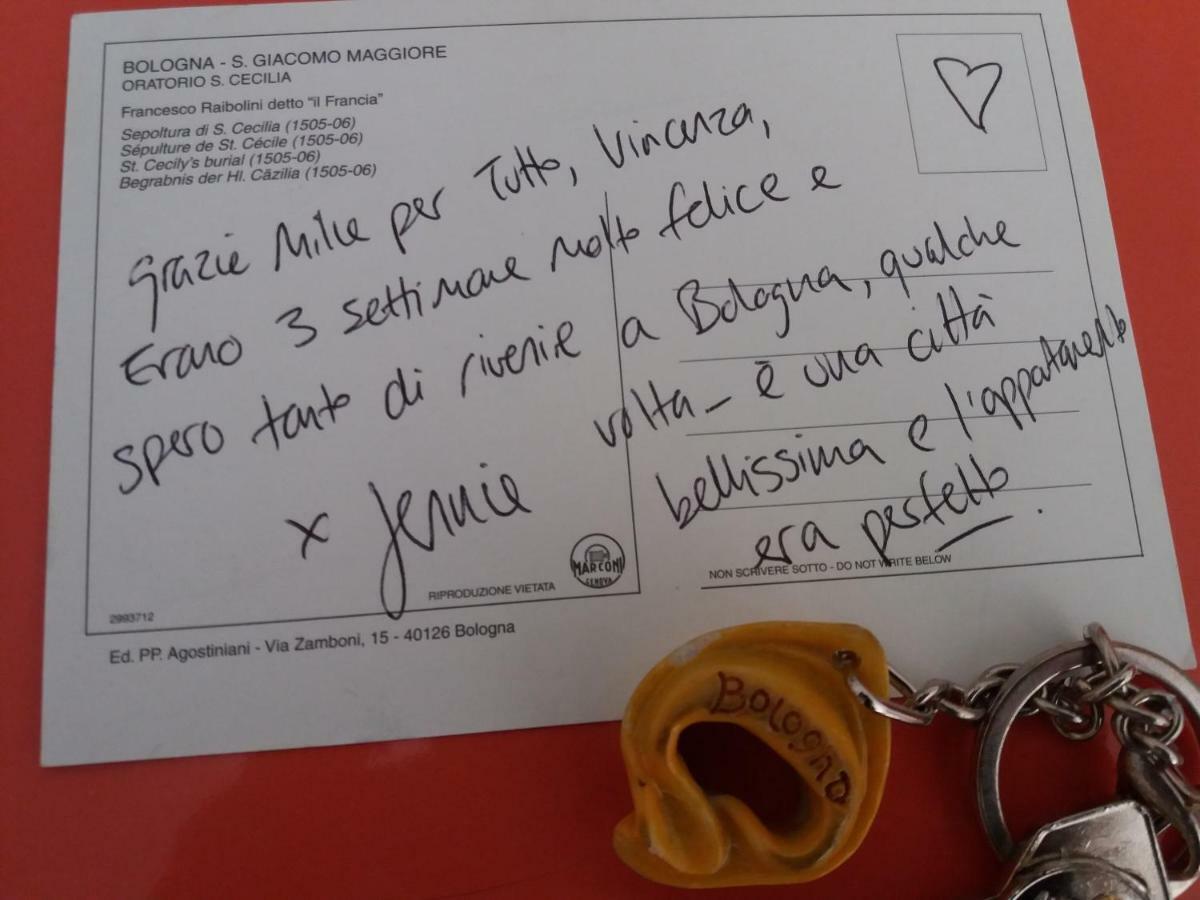 BOLOGNA - S. GIACOMO MAGGIORE
ORATORIO S. CECILIA
Francesco Raibolini detto "il Francia"
Sepoltura di S. Cecilia (1505-06)
Sépulture de St. Cécile (1505-06)
St. Cecily's burial (1505-06)
Begrabnis der Hl. Cäzilia (1505-06)
Grazie Mille per Tutto, Vincenza,
Erano 3 settimane molto felice e
spero tanto di rivenire a Bologna, qualche
volta - è una città
bellissima e l'appartamento
era perfetto.
x Jennie
MARCONI
GENOVA
RIPRODUZIONE VIETATA
NON SCRIVERE SOTTO - DO NOT WRITE BELOW
2993712
Ed. PP. Agostiniani - Via Zamboni, 15 - 40126 Bologna
BOLOGNA